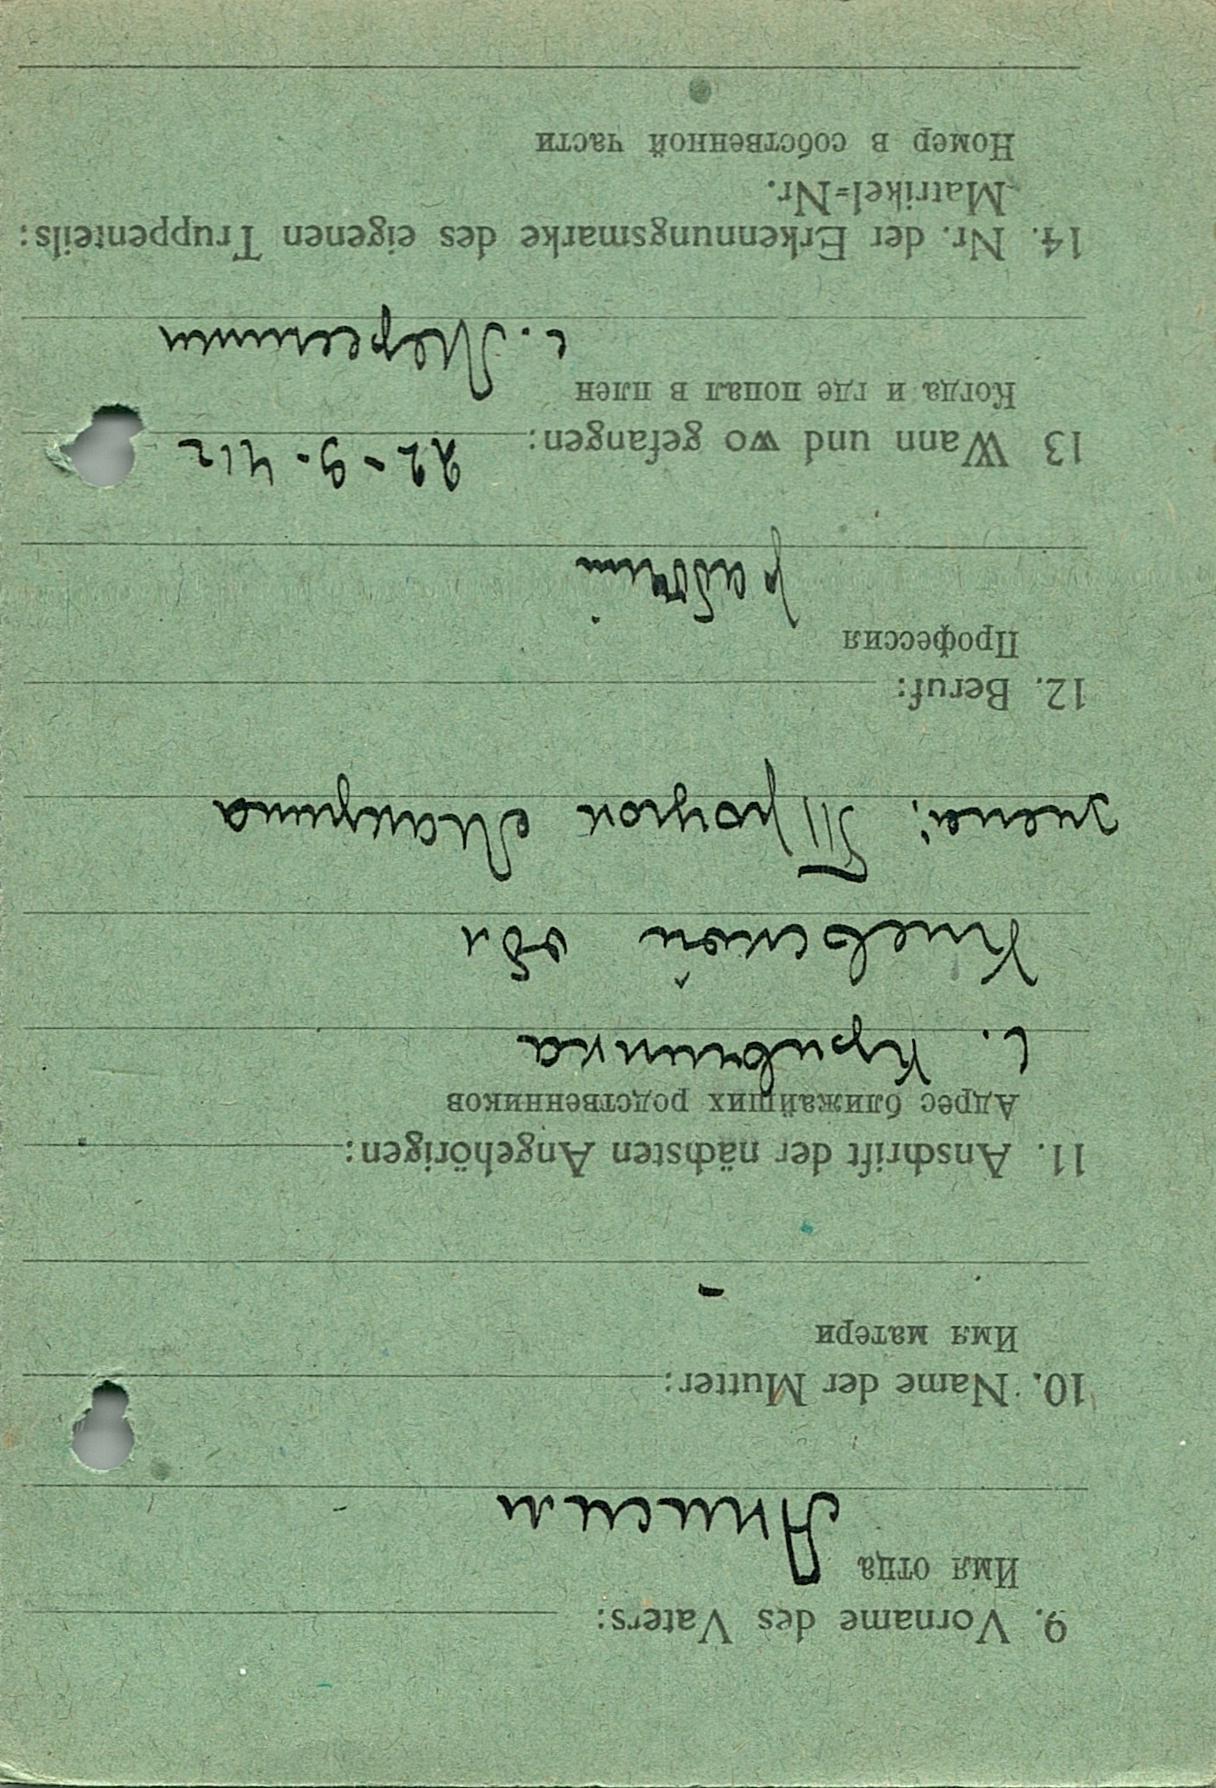 9. Vorname des Vaters:
Имя отца
Анисим
10. Name der Mutter:
Имя матери
-
11. Anschrift der nächsten Angehörigen:
Адрес ближайших родственников
с.
Киевской обл
жена:
12. Beruf:
Профессия
рабочий
13 Wann und wo gefangen: 22-9.41г
Когда и где попал в плен
с.
14. Nr. der Erkennungsmarke des eigenen Truppenteils:
Matrikel=Nr.
Номер в собственной части